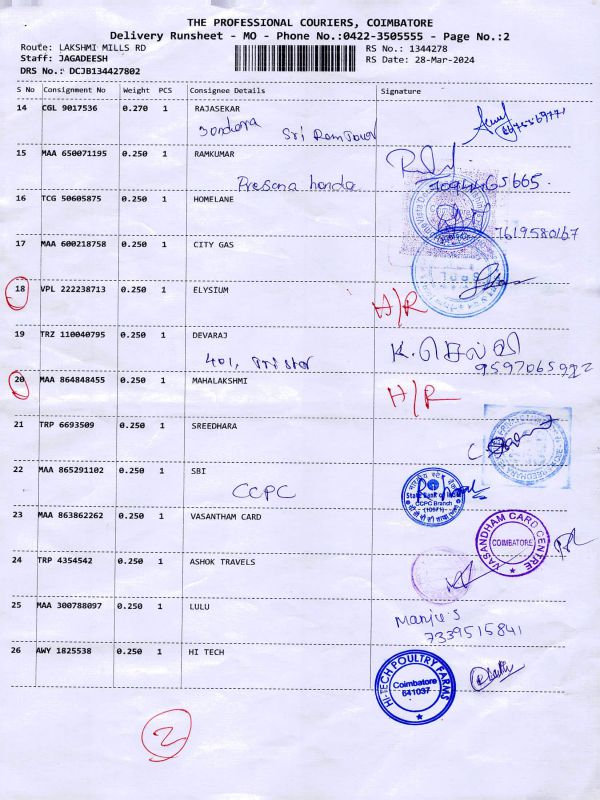 THE PROFESSIONAL COURIERS, COIMBATORE
Delivery Runsheet - MO - Phone No.:0422-3505555 - Page No.:2
Route: LAKSHMI MILLS RD RS No.: 1344278
Staff: JAGADEESH RS Date: 28-Mar-2024
DRS No.: DCJB134427802
S No Consignment No Weight PCS Consignee Details Signature
14 CGL 9017536 0.270 1 RAJASEKAR
Sri Ram Tower
15 MAA 650071195 0.250 1 RAMKUMAR
Prasana honda 7094465665.
16 TCG 50605875 0.250 1 HOMELANE
7619580167
17 MAA 600218758 0.250 1 CITY GAS
18 VPL 222238713 0.250 1 ELYSIUM
H/R
19 TRZ 110040795 0.250 1 DEVARAJ
401, K. செல்வி
9597065992
20 MAA 864848455 0.250 1 MAHALAKSHMI
H/R
21 TRP 6693509 0.250 1 SREEDHARA
22 MAA 865291102 0.250 1 SBI
CCPC
State Bank of India
CCPC Branch
(10571)
23 MAA 863862262 0.250 1 VASANTHAM CARD
VASANDHAM CARD CENTRE
COIMBATORE
24 TRP 4354542 0.250 1 ASHOK TRAVELS
25 MAA 300788097 0.250 1 LULU
Manju S
7339515841
26 AWY 1825538 0.250 1 HI TECH
HI-TECH POULTRY FARMS
Coimbatore
641037
2